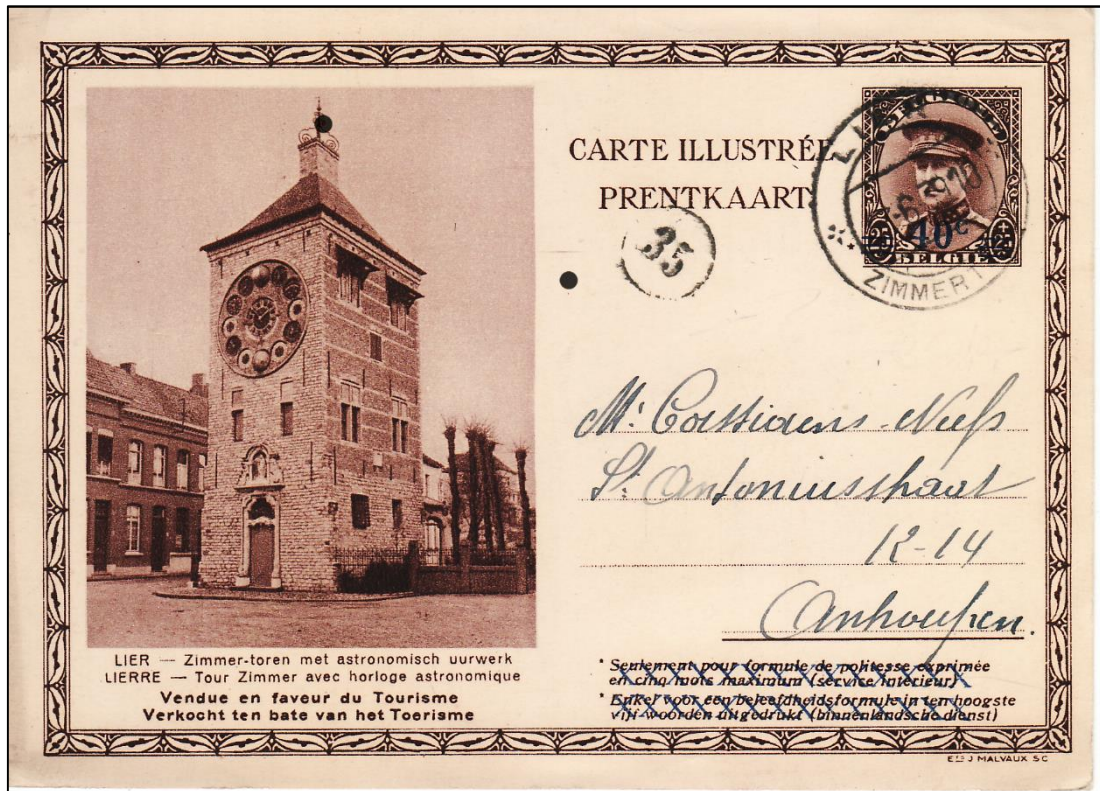 CARTE ILLUSTRÉE
PRENTKAART
35
25 40c 25
BELGIE
ZIMMERT
St Antoniusstraat
12-14
Antwerpen.
LIER — Zimmer-toren met astronomisch uurwerk
LIERRE — Tour Zimmer avec horloge astronomique
Vendue en faveur du Tourisme
Verkocht ten bate van het Toerisme
* Seulement pour formule de politesse exprimée
en cinq mots maximum (service intérieur)
* Enkel voor een beleefdheidsformule in ten hoogste
vijf woorden uitgedrukt (binnenlandsche dienst)
Ets J MALVAUX SC